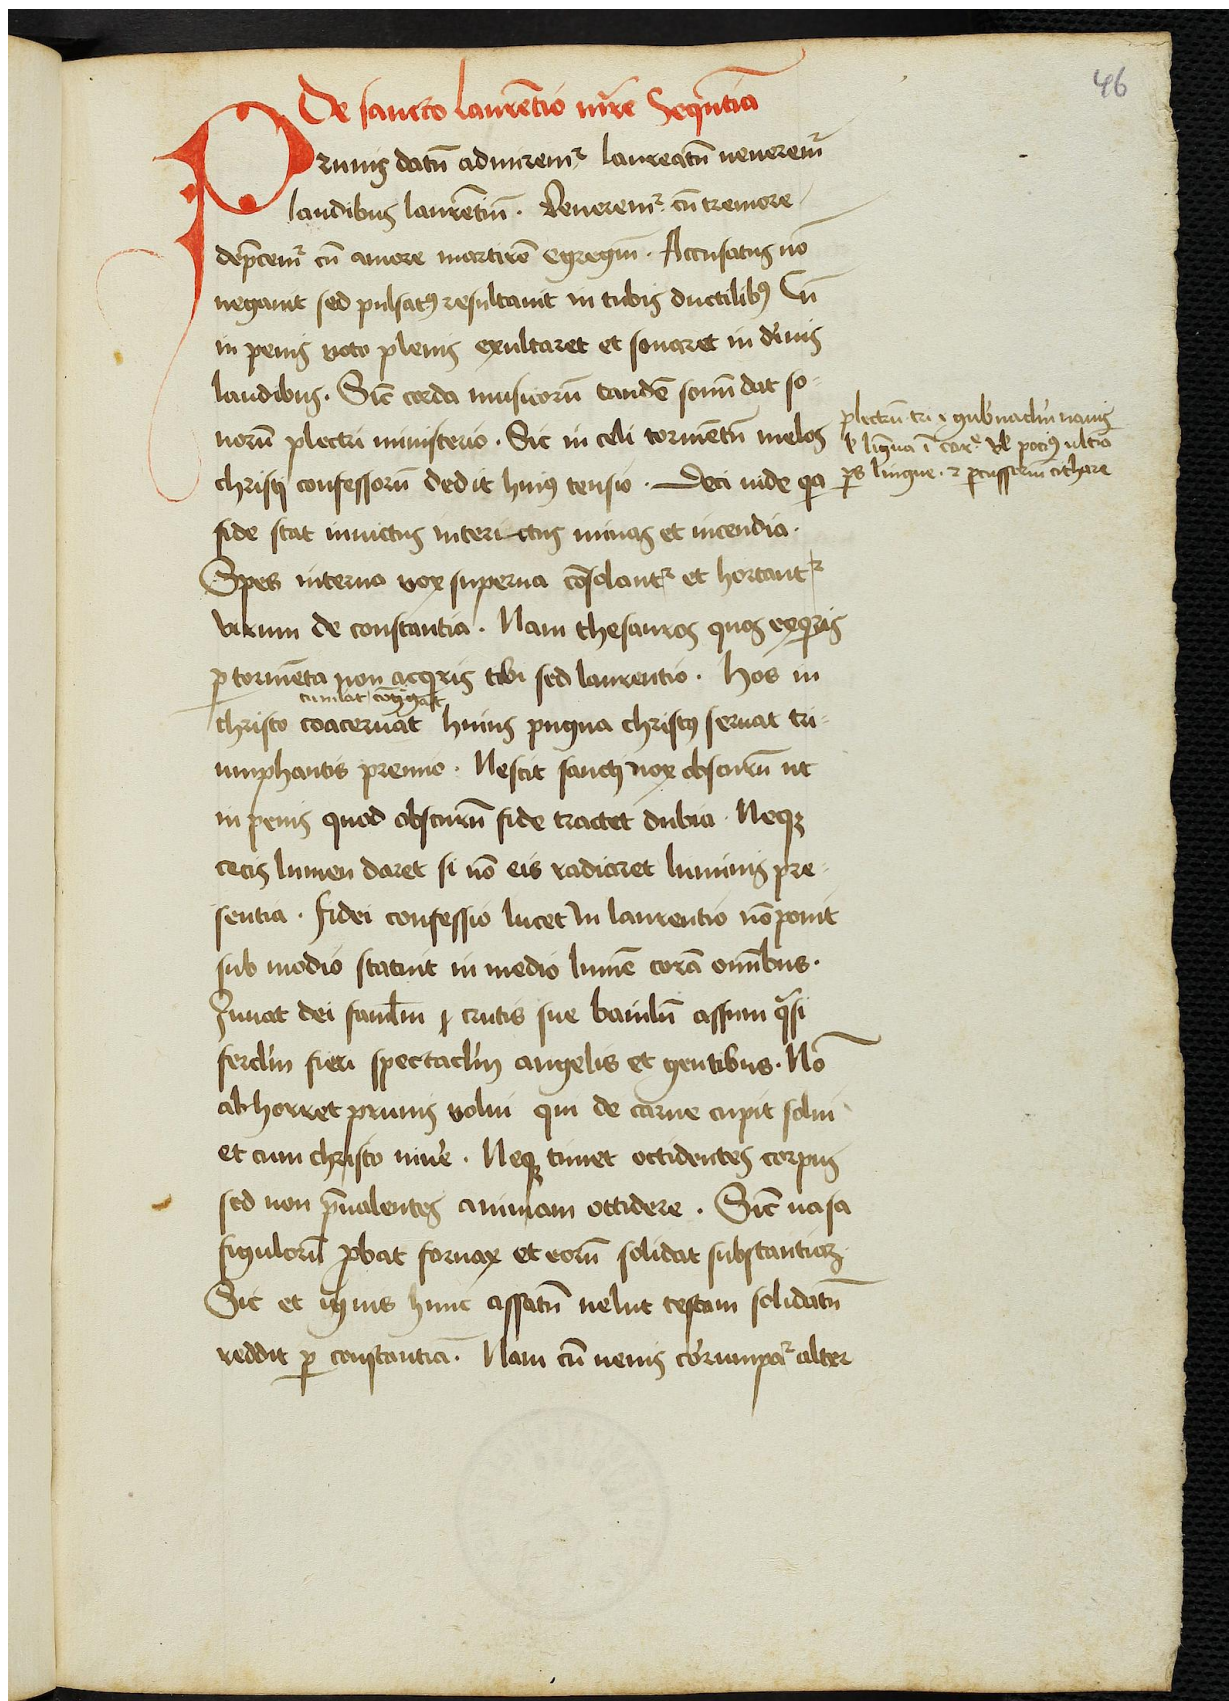 46
De sancto laure͞tio m͞re Seque͞ntia
Prunis datu͞ admirem᷑ laureatu͞ ueneremᷣ
laudibus laure͞tiu͞. Venerem᷑ cu͞ tremore
dep͞cem᷑ cu͞ amore martire͞ egregiu͞. Accusatus no͞
negauit sed pulsatꝯ resultauit in tubis ductilibꝯ Cu͞
in penis uoto plenis exultaret et sonaret in diuis
laudibus. Sic͞ corda musicoru͞ tande͞ sonu͞ dat so-
noru͞ plectri ministerio. Sic in celi torme͞tu͞ melos
christi confessoru͞ dedit huiꝯ tensio. Deci uide qa
fide stat inuictus inter ictus minas et incendia.
Spes interna uox superna co͞solant᷑ et hortant᷑
virum de constantia. Nam thesauros quos exqris
ꝑ torme͞ta non acqris tibi sed laurentio. Hos in
cumlat congregat
christo coaceruat huius pugna christꝯ seruat tri-
umphantis premio. Nescit sancti nox obscuru͞ ut
in penis quod obscuru͞ fide tractet dubia. Neqꝫ
cecis lumen daret si no͞ eis radiaret luminis pre-
sentia. Fidei confessio lucet in laurentio no͞ ponit
sub modio statuit in medio lume͞ cora͞ om͞ibus.
Iuuat dei famlm ꝛ crucis sue baiulu͞ assum qasi
ferclm fieri spectaclm angelis et gentibus. No͞
abhorret prunis uolui qui de carne cupit solui
et cum christo uiue͛. Neqꝫ timet occidentes corpus
sed non p͞ualentes animam occidere. Sic͞ uasa
figuloru͞ ꝓbat fornax et eoru͞ solidat substantiaꝫ
Sic et ignis hunc assatu͞ uelut testam solidatu͞
reddit ꝑ constantia͞. Nam cu͞ uenis corrumpa᷑ alter
plectru͞ tri ꝛ gub͛naclm nauis
ł lingua i͞ cor͛ Vł pociꝯ ultia
ps lingue. ꝛ ꝑcussoriu͞ cithare